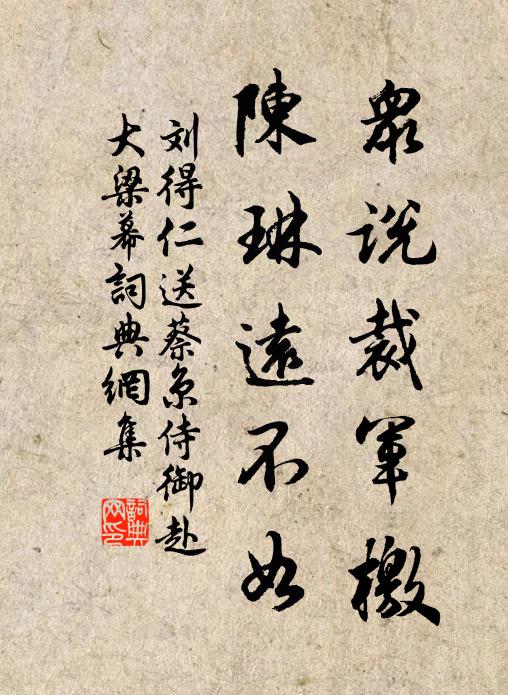 眾說裁軍檄
陳琳遠不如
刘得仁送蔡京侍御赴
大梁幕詞典網集
詞典網印